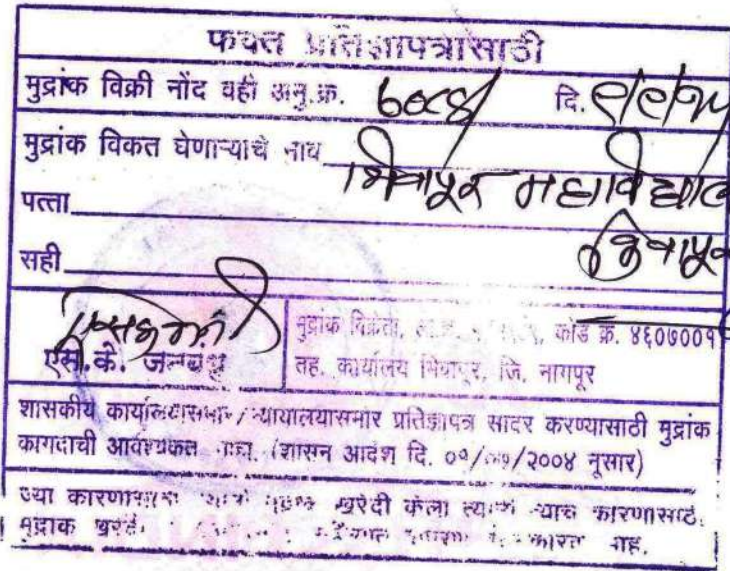 फक्त प्रतिज्ञापत्रासाठी
मुद्रांक विक्री नोंद वही अनु.क्र. ७०८४ दि. ९/९/१५
मुद्रांक विकत घेणाऱ्याचे नाव भिवापूर महाविद्यालय
पत्ता भिवापूर
सही
एस.के. जनबंधु
मुद्रांक विक्रेता, कोड क्र. ४६०७००१
तह. कार्यालय भिवापूर, जि. नागपूर
शासकीय कार्यालयासमोर / न्यायालयासमोर प्रतिज्ञापत्र सादर करण्यासाठी मुद्रांक
कागदाची आवश्यकता नाही. (शासन आदेश दि. ०१/०७/२००४ नुसार)
ज्या कारणासाठी ज्यांनी मुद्रांक खरेदी केला त्यांनी त्याच कारणासाठी
मुद्रांक खरेदी